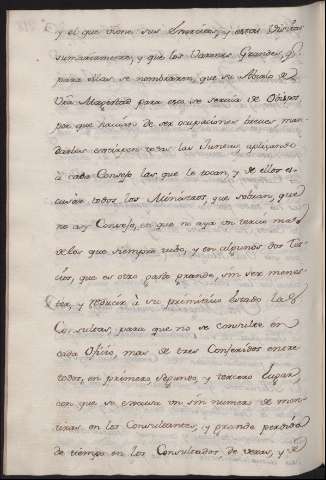 y el que tiene sus Intereses, y estas Visitas
sumariamente, y que los Varones Grandes, q.
para ellas se nombraren, que su Abuelo de
Vra Magestad para eso se servia de Obispos
por que hauian de ser ocupaciones breues man-
darlas todas las Juntas, aplicando
à cada Consejo las que le tocan, y de ellos es-
cusar todos los Ministros, que sobran, que
no ay Consejo, en que no aya un tercio mas
de los que siempre tubo, y en algunos dos ter-
cios, que es otro gasto grande, sin ser menes-
ter, y reducir à su primitivo Estado las
Consultas, para que no se consulte en
cada Oficio mas de tres Conferidos entre
todos, en primero, segundo, y tercero Lugar,
con que se escusa un sin numero de men-
tiras en los Consultantes, y grande perdida
de tiempo en los Consultados, de veras, y de